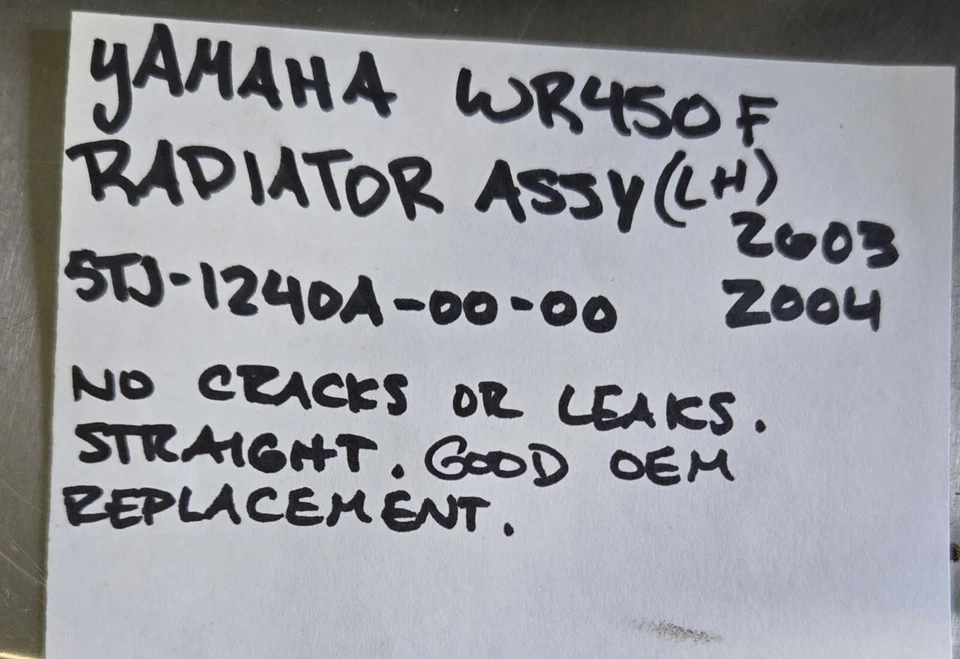 YAMAHA WR450F
RADIATOR ASSY (LH)
2003
5TJ-1240A-00-00 2004
NO CRACKS OR LEAKS.
STRAIGHT. GOOD OEM
REPLACEMENT.